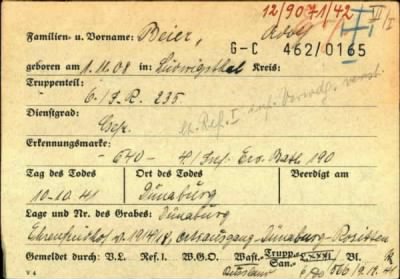 12/9071/42
Familien- u. Vorname: Beier, Adolf
G-C 462/0165
geboren am 1.11.08 in: Ludwigsthal Kreis:
Truppenteil:
6./J.R. 235
Dienstgrad:
Gefr.
lt. Ref. I inf. Verwdg. verst.
Erkennungsmarke:
- 640 - 4/Inf. Ers. Batl. 190
Tag des Todes Ort des Todes Beerdigt am
10.10.41 Dünaburg
Lage und Nr. des Grabes: Dünaburg
Ehrenfriedhof v. 1914/18, Ortsausgang Dünaburg-Rositten
Gemeldet durch: V.L. Ref. I. V.G. W.G. Wast.- Trupp.- San.- XXXVI Bl.
V 4